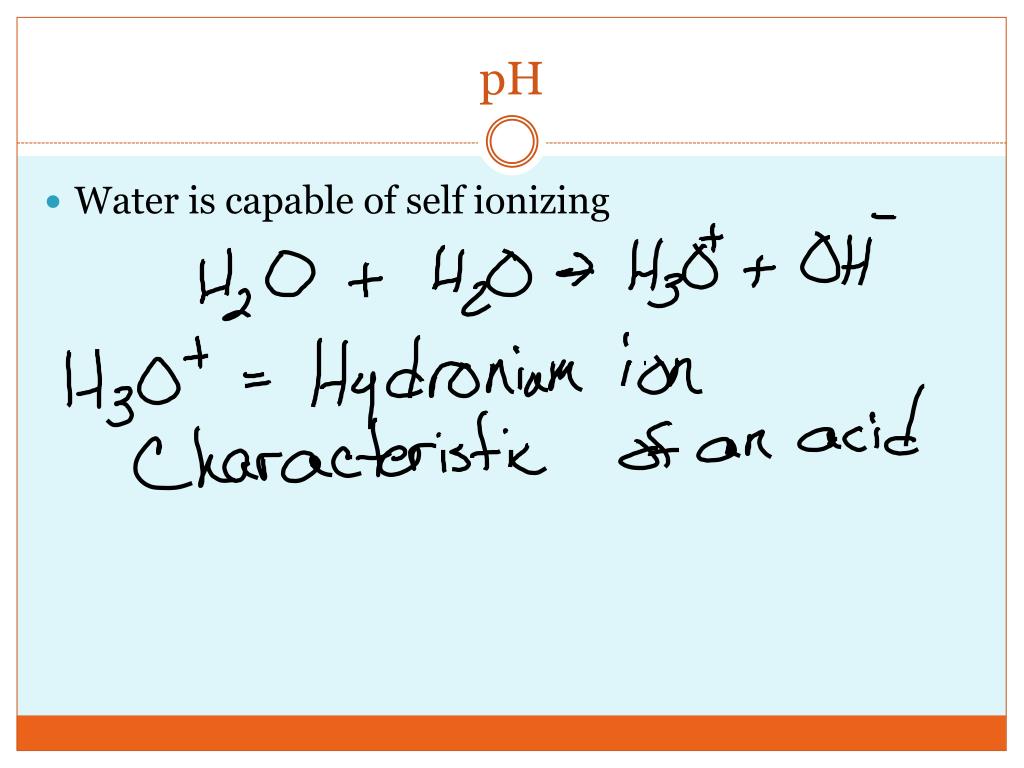 pH
• Water is capable of self ionizing
H₂O + H₂O → H₃O⁺ + OH⁻
H₃O⁺ = Hydronium ion
Characteristic of an acid